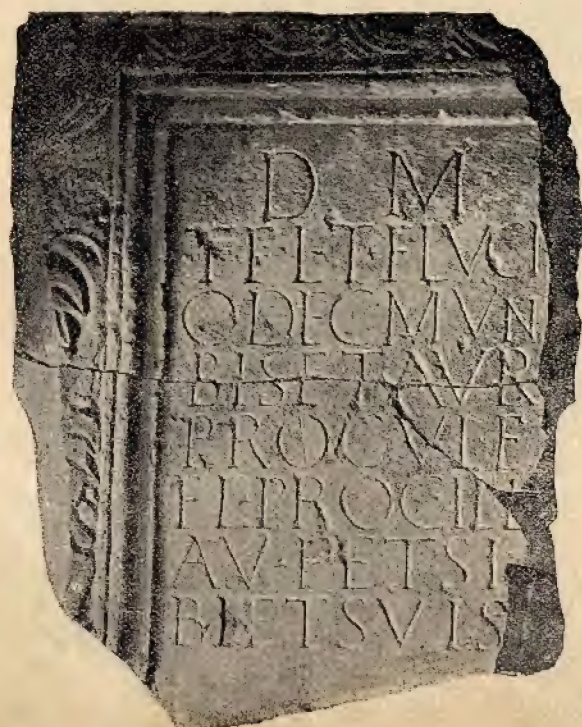 D M
T·FL·T·F·LVCI
O DEC MVN
BIS ET·AVR
PROCVLE
FL·PROCIL
AV·P ET SI
BI ET SVIS